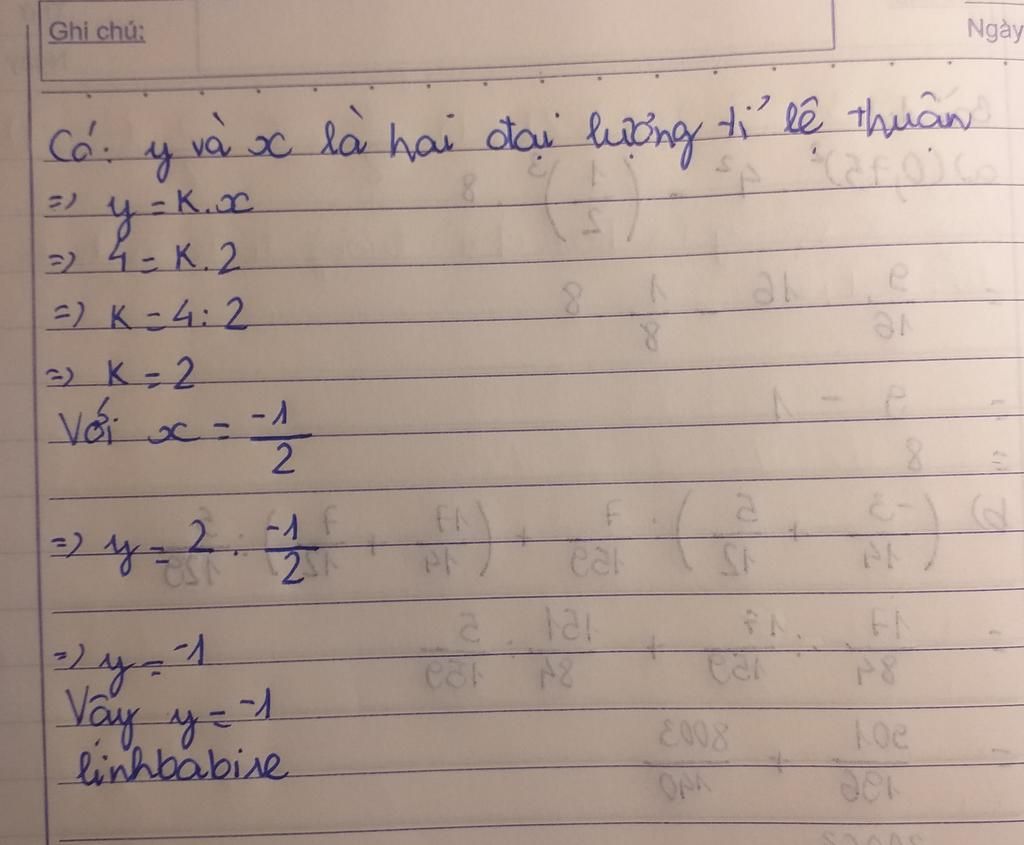 Ghi chú:
Ngày
Có: y và x là hai đại lượng tỉ lệ thuận
=> y = K.x
=> 4 = K.2
=> K = 4:2
=> K = 2
Với x = -1/2
=> y = 2 . -1/2
=> y = -1
Vậy y = -1
linhbabise